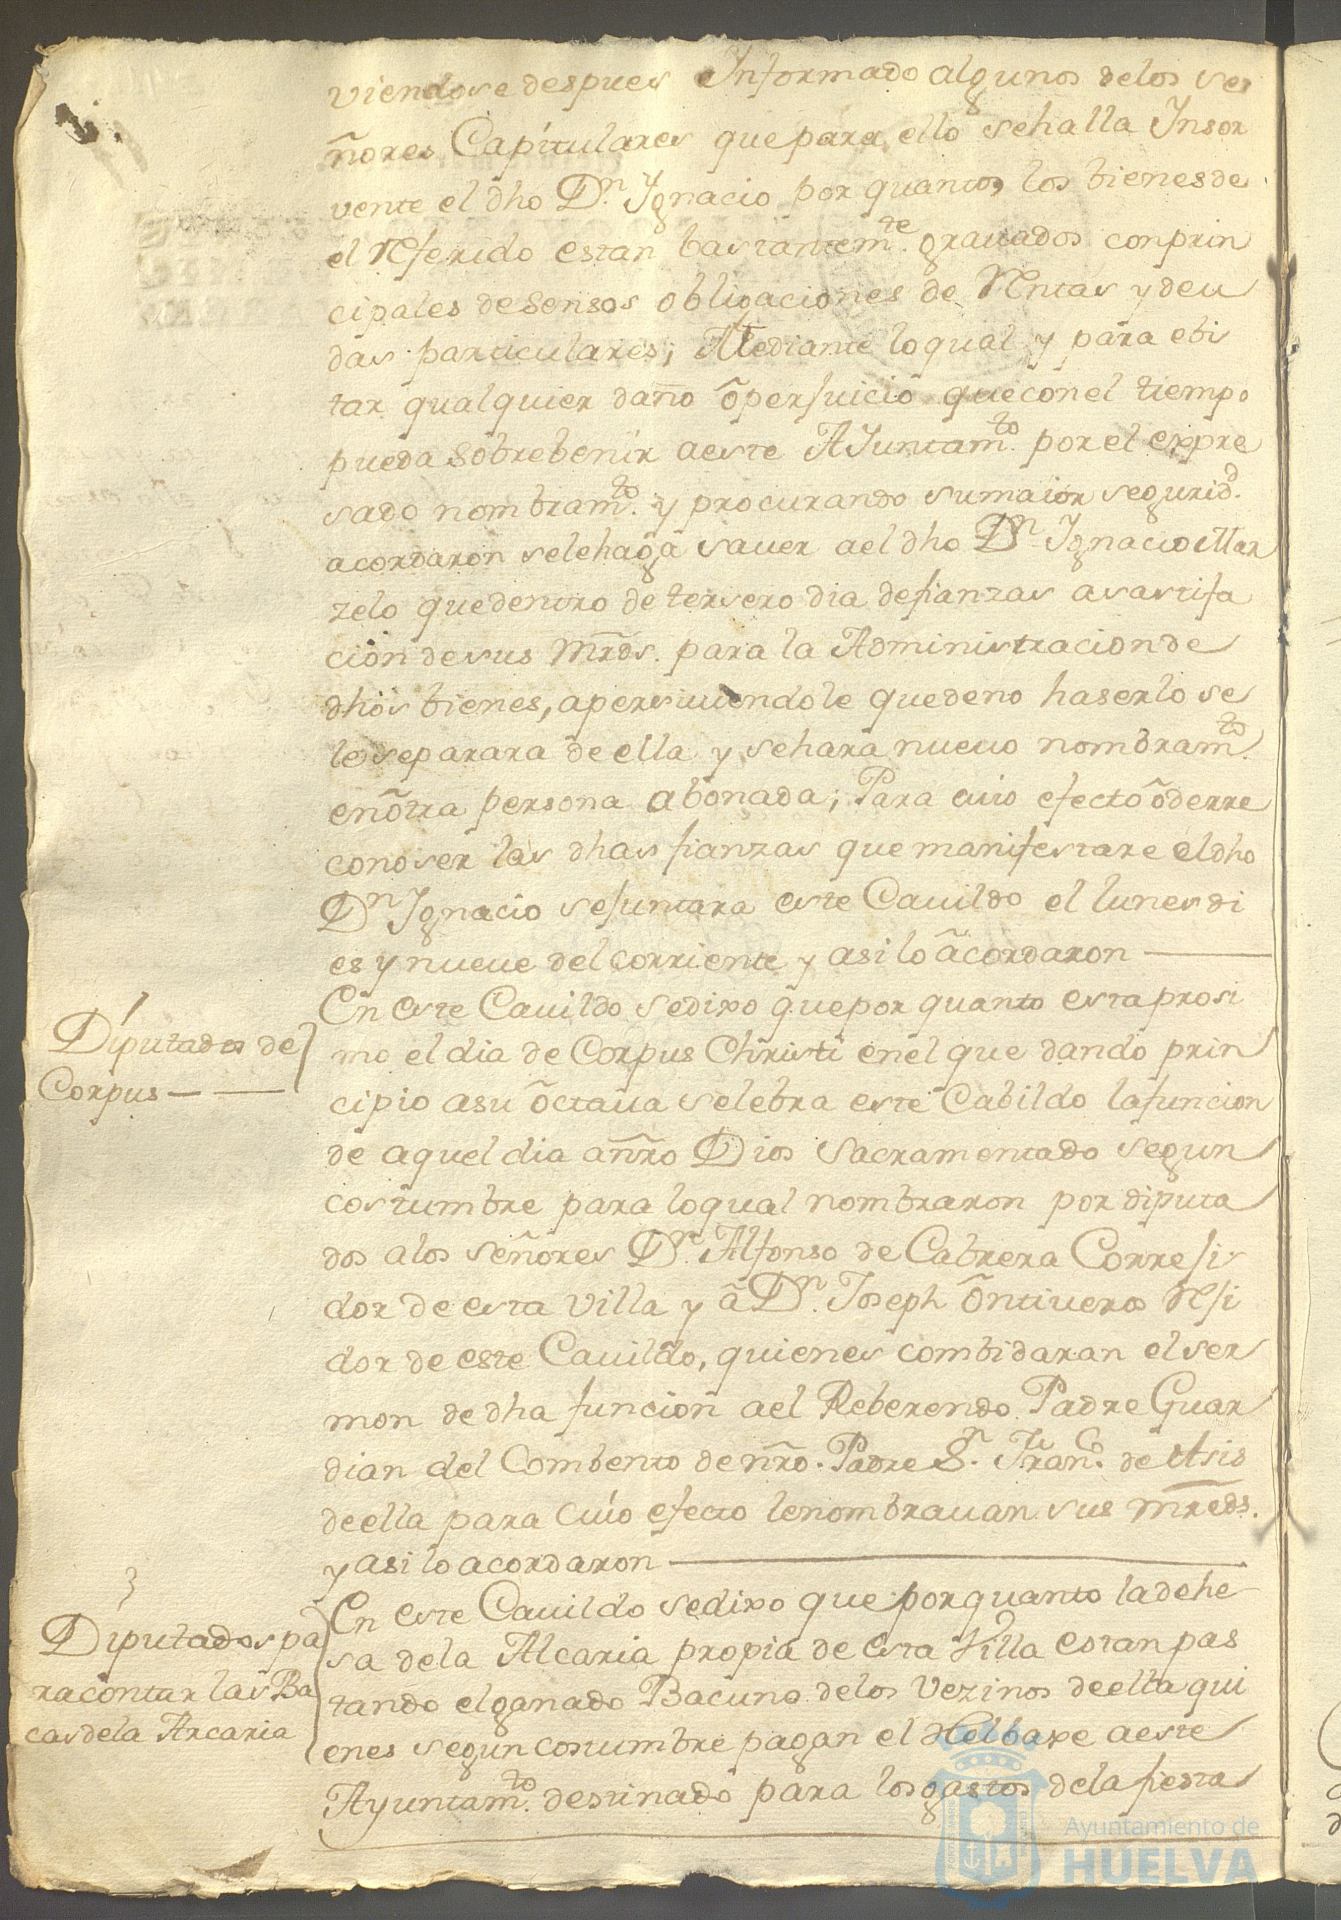 viendose despues Informado algunos delos se
ñores Capitulares que para ello sehalla Insor
vente el dho Dn. Ygnacio por quantos los bienes de
el Rferido estan bastantemte. grauados con prin
cipales de Sensos obligaciones de Rntas y deu
das particulares; Mediante lo qual y para ebi
tar qualquier daño õ persuicio que con el tiempo
pueda Sobrebenir aeste AJuntamto. por el expre
sado nombramto. y procurando su maior seguridd.
acordaron selehaga sauer ael dho Dn. Ygnacio Mar
zelo que dentro de tersero dia de fianzas a sastifa
cion de sus Mrds. para la Administracion de
dhos bienes, apersiuiendole que de no haserlo se
le separara de ella y se hara nueuo nombramto.
en õtra persona abonada; Para cuio efecto õ de rre
conoser las dhas fianzas que manifestare el dho
Dn Ygnacio se juntara este Cauildo el lunes di
es y nueue del corriente y asi lo ãcordaron
Diputados de
Corpus
En este Cauildo se dixo que por quanto esta prosi
mo el dia de Corpus Christi en el que dando prin
cipio a su õctaua selebra este Cabildo la funcion
de aquel dia a nro Dios Sacramentado segun
costumbre para lo qual nombraron por diputa
dos a los señores Dn. Alfonso de Cabrera Correji
dor de esta Villa y ã Dn. Joseph Õntiueros Rji
dor de este Cauildo, quienes combidaran el ser
mon de dha funcion ael Reberendo Padre Guar
dian del Combento de nro. Padre Sn. Franco. de Asis
de ella para cuio efecto le nombrauan sus Mrzeds.
y asi lo acordaron
3
Diputados pa
ra contar las Ba
cas dela Arcaria
En este Cauildo se dixo que por quanto la dehe
sa de la Alcaria propia de esta Villa estan pas
tando el ganado Bacuno delos Vezinos de ella qui
enes segun costumbre pagan el Helbaxe a este
Ayuntamto. destinado para los gastos de la fiesta
Ayuntamiento de
HUELVA